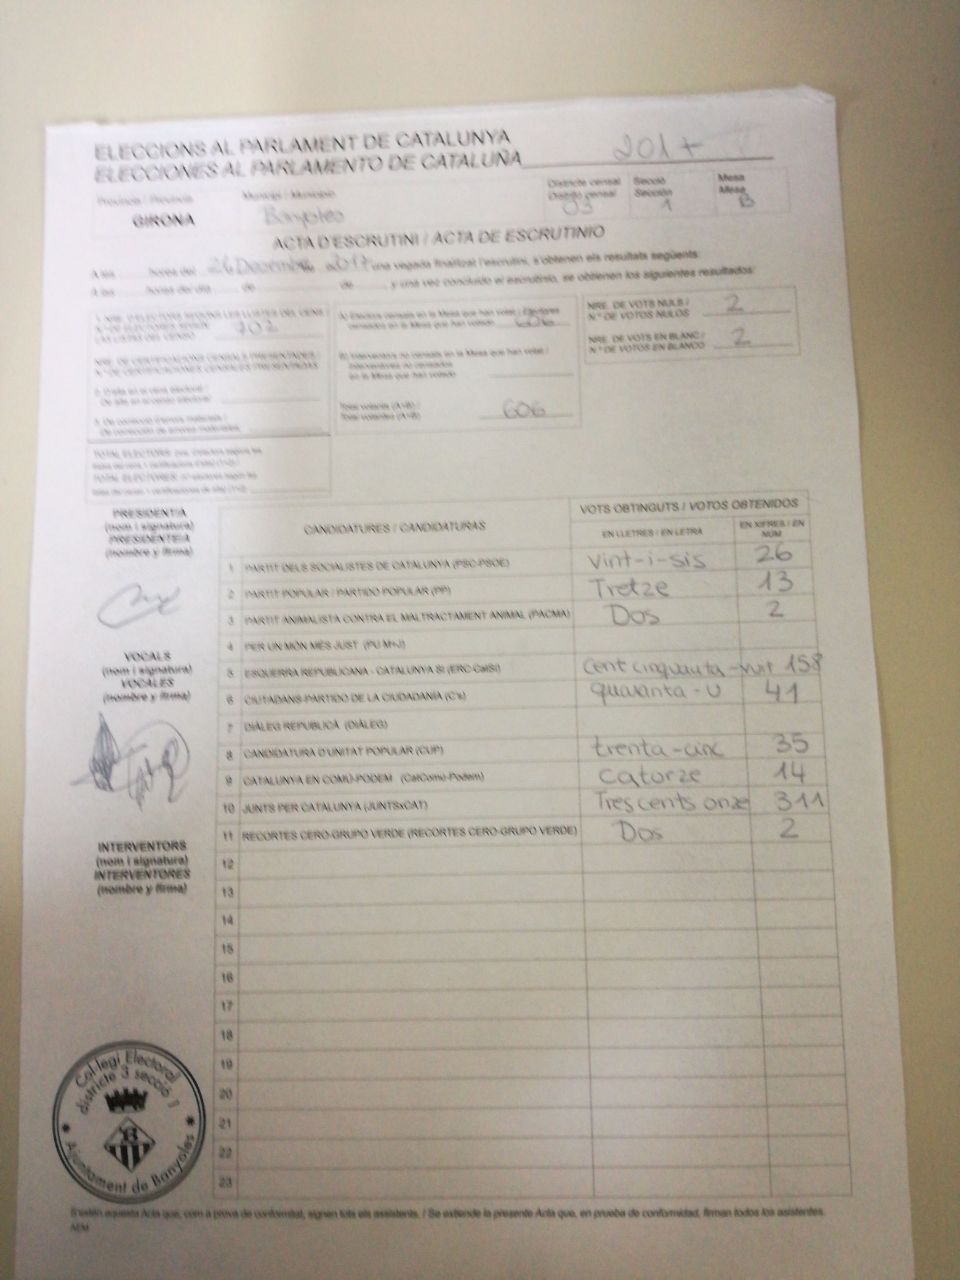 ELECCIONS AL PARLAMENT DE CATALUNYA
ELECCIONES AL PARLAMENTO DE CATALUÑA 2017
Província / Provincia
GIRONA
Municipi / Municipio
Banyoles
Districte censal
Distrito censal
03
Secció
Sección
1
Mesa
Mesa
B
ACTA D'ESCRUTINI / ACTA DE ESCRUTINIO
A les hores del 2017 una vegada finalitzat l'escrutini, s'obtenen els resultats següents:
A las horas del día de de y una vez concluido el escrutinio, se obtienen los siguientes resultados:
702
NRE. DE CERTIFICACIONS CENSALS PRESENTADES /
N.º DE CERTIFICACIONES CENSALES PRESENTADAS
A) Electors censats en la Mesa que han votat / Electores
censados en la Mesa que han votado 606
B) Interventors no censats en la Mesa que han votat /
Interventores no censados
en la Mesa que han votado
Total votants (A+B) /
Total votantes (A+B) 606
NRE. DE VOTS NULS /
N.º DE VOTOS NULOS 2
NRE. DE VOTS EN BLANC /
N.º DE VOTOS EN BLANCO 2
PRESIDENT/A
(nom i signatura)
PRESIDENTE/A
(nombre y firma)
VOCALS
(nom i signatura)
VOCALES
(nombre y firma)
INTERVENTORS
(nom i signatura)
INTERVENTORES
(nombre y firma)
CANDIDATURES / CANDIDATURAS
VOTS OBTINGUTS / VOTOS OBTENIDOS
EN LLETRES / EN LETRA
EN XIFRES / EN NÚM
1 PARTIT DELS SOCIALISTES DE CATALUNYA (PSC-PSOE) Vint-i-sis 26
2 PARTIT POPULAR / PARTIDO POPULAR (PP) Tretze 13
3 PARTIT ANIMALISTA CONTRA EL MALTRACTAMENT ANIMAL (PACMA) Dos 2
4 PER UN MÓN MÉS JUST (PU M+J)
5 ESQUERRA REPUBLICANA - CATALUNYA SÍ (ERC-CatSí) Cent cinquanta-vuit 158
6 CIUTADANS-PARTIDO DE LA CIUDADANÍA (C's) quaranta-u 41
7 DIÀLEG REPUBLICÀ (DIÀLEG)
8 CANDIDATURA D'UNITAT POPULAR (CUP) trenta-cinc 35
9 CATALUNYA EN COMÚ-PODEM (CatComú-Podem) Catorze 14
10 JUNTS PER CATALUNYA (JUNTSxCAT) Trescents onze 311
11 RECORTES CERO-GRUPO VERDE (RECORTES CERO-GRUPO VERDE) Dos 2
12
13
14
15
16
17
18
19
20
21
22
23
Col·legi Electoral
districte 3 secció 1
Ajuntament de Banyoles
S'estén aquesta Acta que, com a prova de conformitat, signen tots els assistents. / Se extiende la presente Acta que, en prueba de conformidad, firman todos los asistentes.